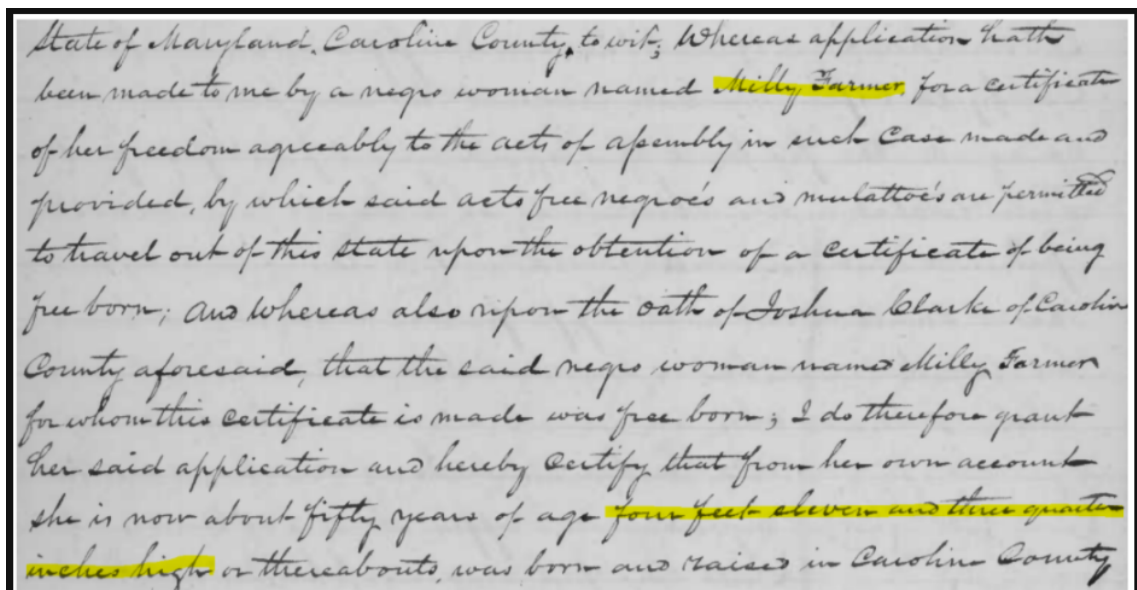 State of Maryland, Caroline County, to wit; Whereas application hath
been made to me by a negro woman named Milly Farmer, for a certificate
of her freedom agreeably to the acts of assembly in such Case made and
provided, by which said acts free negroe's and mulattoe's are permitted
to travel out of this state upon the obtention of a certificate of being
free born; and whereas also upon the oath of Joshua Clarke of Caroline
County aforesaid, that the said negro woman named Milly Farmer
for whom this certificate is made was free born; I do therefore grant
her said application and hereby certify that from her own account
she is now about fifty years of age four feet eleven and three quarter
inches high or thereabouts, was born and raised in Caroline County